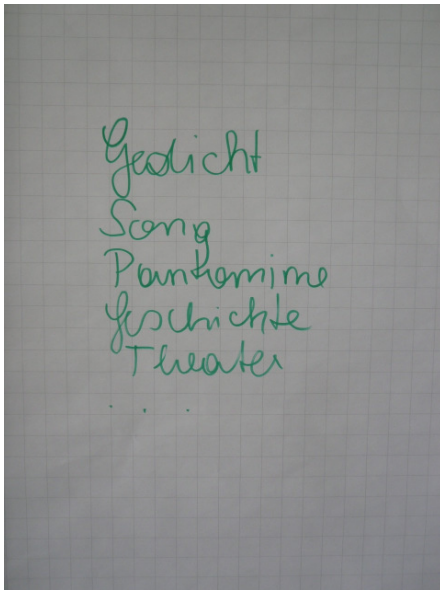 Gedicht
Song
Pantomime
Geschichte
Theater
. . .